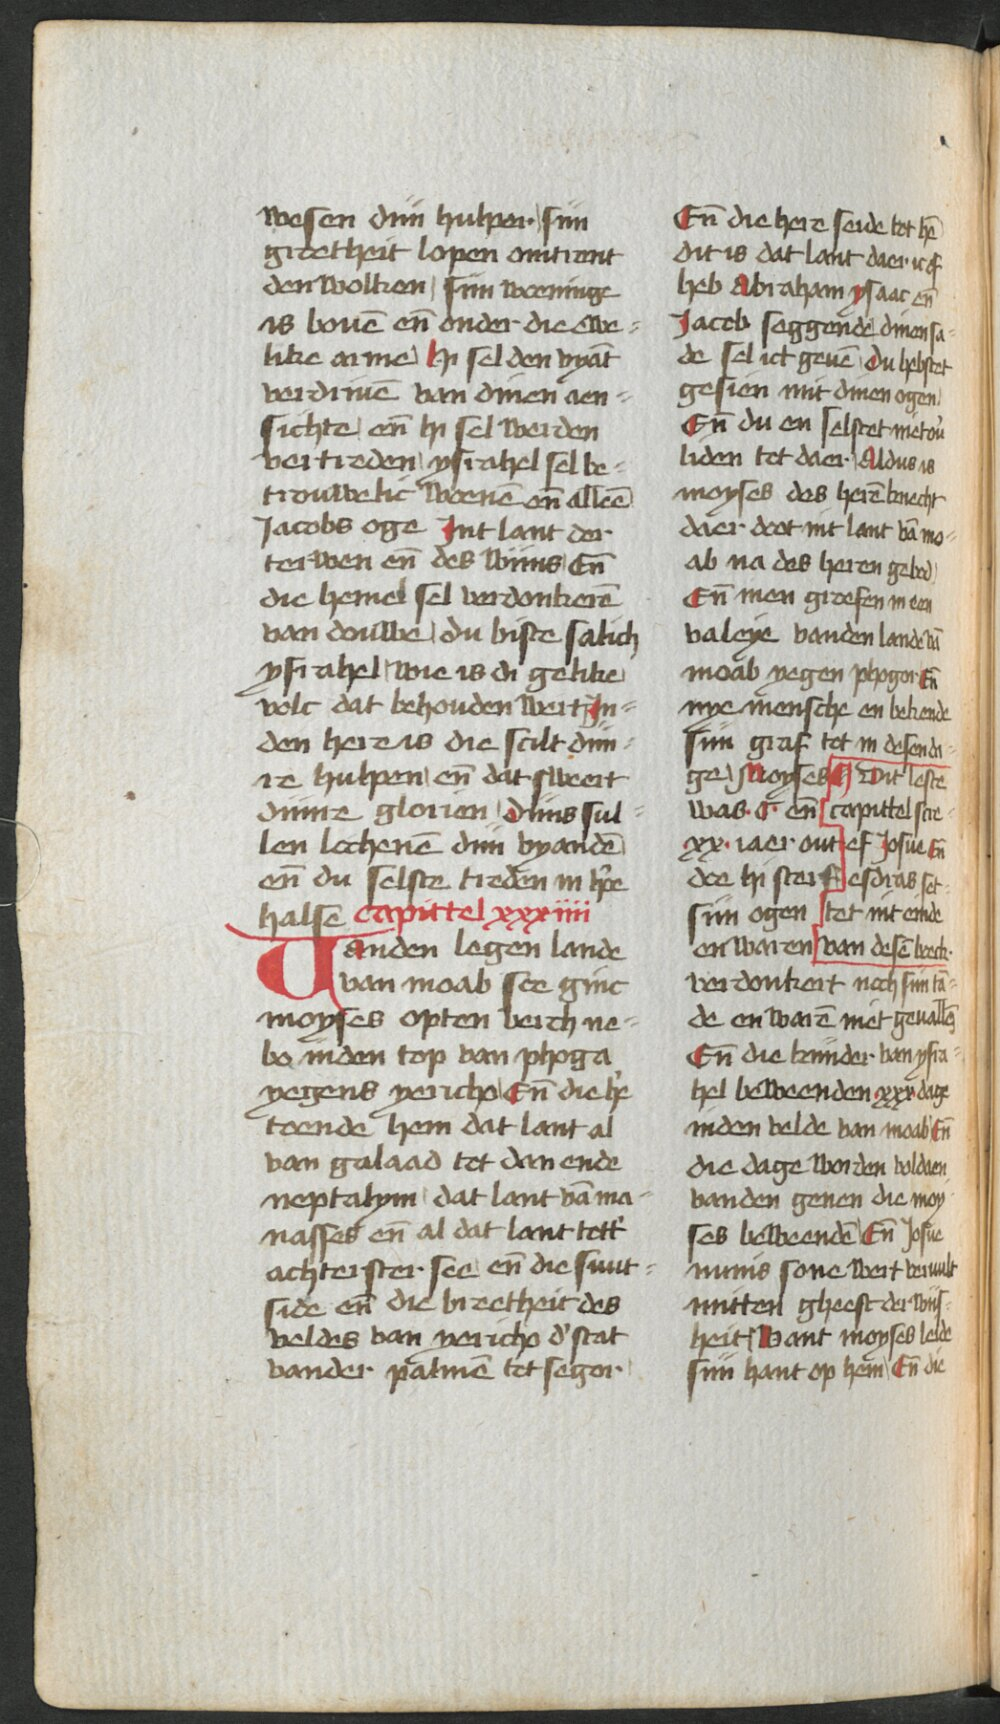 wesen dijn hulper sijn
groetheit lopen omtrent
den wolken sijn woeninge
is bouē en̄ onder die ewe=
like arme Hi sel den vyāt
verdriuē van dinen aen=
sichte en̄ hi sel werden
vertreden ysrahel sel be=
trouwelic woenē en̄ alleē
Jacobs oge Int lant der
terwen en̄ des wijns En̄
die hemel sel verdonkerē
van douwe du biste salich
ysrahel wie is di gelike
volc dat behouden wert In=
den here is die scilt dijn=
re hulpen en̄ dat sweert
dijnre glorien dijns sul=
len lochenē dijn vyandē
en̄ du selste treden in hʼoe
halsē Capittel xxxiiii
Uanden legen lande
van moab soe ginc
moyses opten berch ne=
bo inden top van phoga
yegens yericho En̄ die hʼe
toende hem dat lant al
van galaad tot dan ende
neptalym dat lant vā ma=
nasses en̄ al dat lant tottʼ
achterster see en̄ die suut=
side en̄ die breetheit des
veldes van yericho dʼ stat
vander palmē tot segor
En̄ die here seide tot hē
dit is dat lant daer ic of
heb Abraham ysaac en̄
Jacob seggende dinen sa=
de sel ict geuē Du hebstet
gesien mit dinen ogen
En̄ du en selstet niet ouʼ
liden tot daer Aldus is
moyses des herē knecht
daer doot int lant vā mo=
ab na des heren gebod
En̄ men groefen in een
valeye vanden lande vā
moab yegen phogor En̄
nye mensche en bekende
sijn graf tot in desen da=
ge Moyses
was .C. en̄
xx. iaer out
doe hi sterf
sijn ogen
en waren
Dit leste
capittel scre=
ef Josue En̄
esdras set=
tet int einde
van desē boeck
verdonkert noch sijn tā=
de en warē niet geuallē
En̄ die kinder van ysra=
hel beweenden xxx dage
inden velde van moab En̄
die dage worden voldaen
vanden genen die moy=
ses beweendē En̄ Josue
nunis sone wert veruult
mitten gheest der wijs=
heit Want moyses leide
sijn hant op hem En̄ die